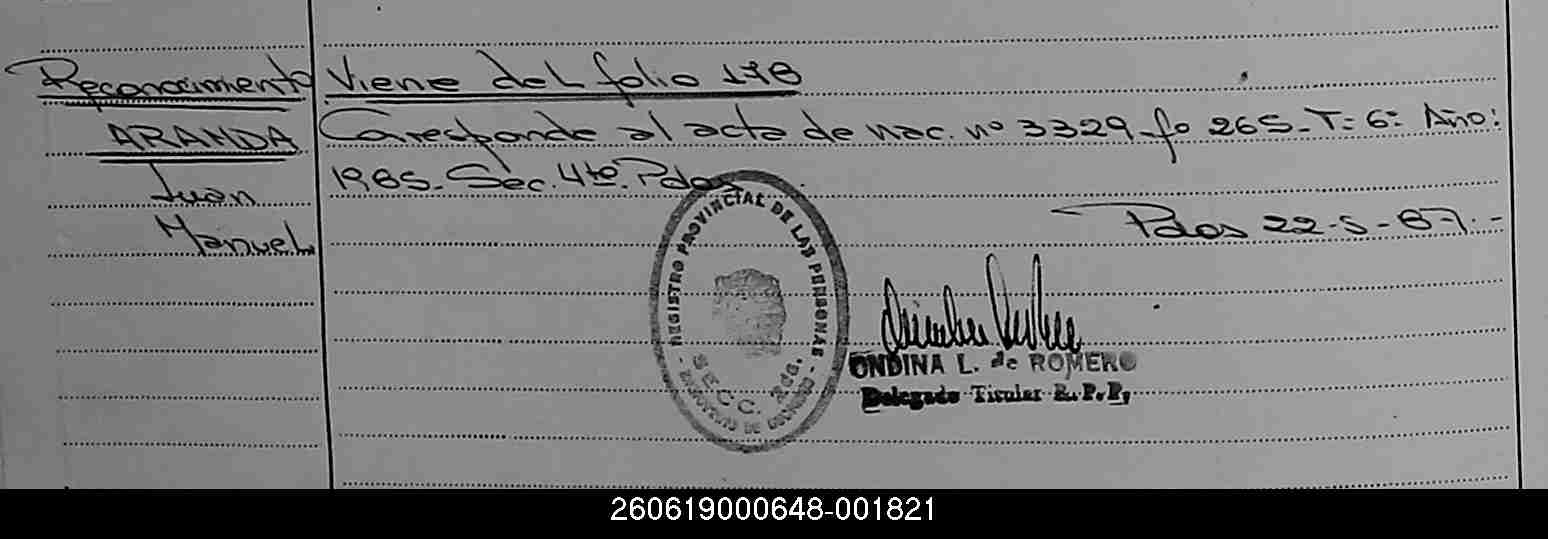 Reconocimiento
ARANDA
Juan
Manuel
Viene del folio 178
Corresponde al acta de nac. nº 3329 fº 265 - T: 6: Año:
1985 - Sec. 4tº. Pdas
Pdas 22-5-87.-
REGISTRO PROVINCIAL DE LAS PERSONAS
SECC. 2da.
ONDINA L. de ROMERO
Delegado Titular R. P. P.
260619000648-001821